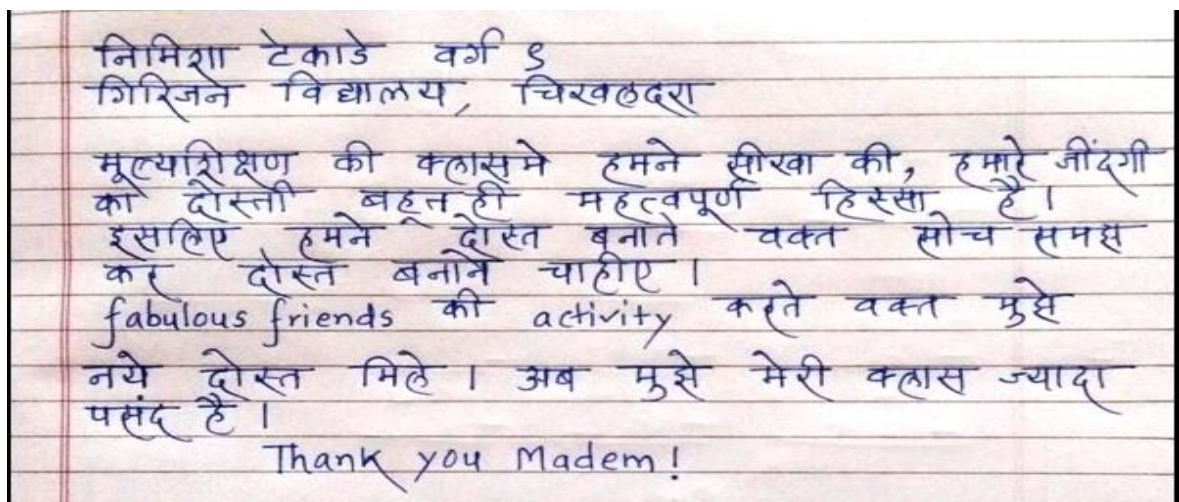 निमिशा टेकाडे वर्ग ९
गिरिजन विद्यालय, चिखलदरा
मूल्यशिक्षण की क्लासमे हमने सीखा की, हमारे जींदगी
का दोस्ती बहूत ही महत्वपूर्ण हिस्सा है।
इसलिए हमने दोस्त बनाते वक्त सोच समझ
कर दोस्त बनाने चाहीए।
fabulous friends की activity करते वक्त मुझे
नये दोस्त मिले। अब मुझे मेरी क्लास ज्यादा
पसंद है।
Thank you Madem!